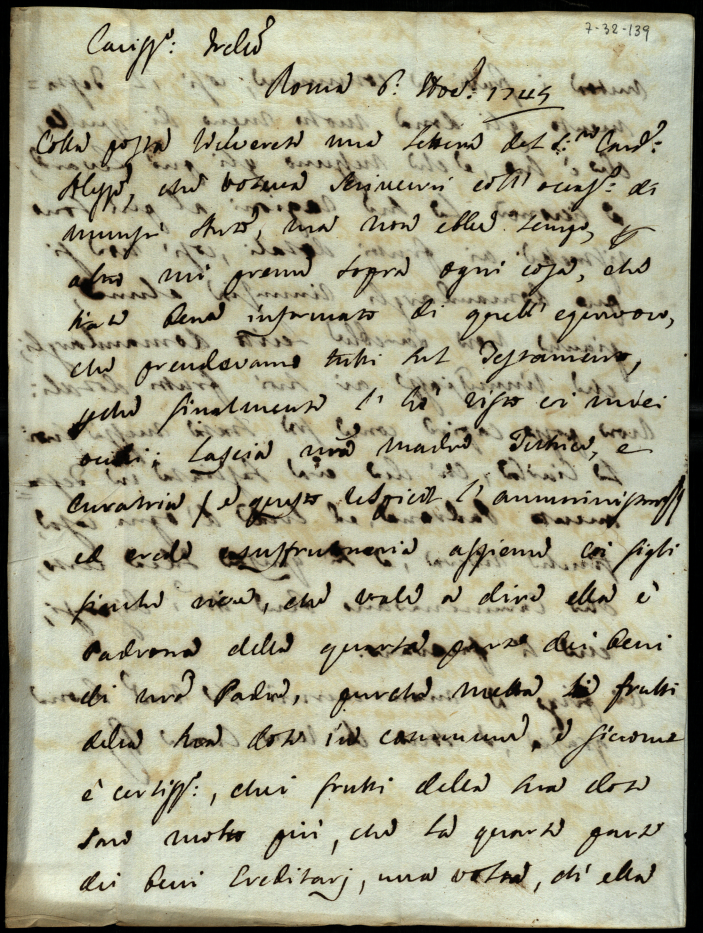 7-32-139
Cariss:
Roma 6: Nov: 1745
Colla posta riceverete una lettera del Card:
che voleva scrivervi coll' occas: di
ma non ebbe tempo,
altro mi preme sopra ogni cosa, che
siate bene informato di quell' equivoco,
che prendevamo tutti sul Testamento,
finalmente l' hò visto co i miei
occhi: Lascia nrã Madre Tutrice, e
curatrice / e questo l' amministraz
ed erede usufruttuaria assieme coi figli
finche vive, che vale a dire ella è
Padrona della quarta parte dei beni
di nrõ Padre, purche metta frutti
della sua dote in commune, e siccome
è certiss:, che i frutti della sua dote
sono molto più, che la quarta parte
dei beni Ereditarj, una volta, ch' ella